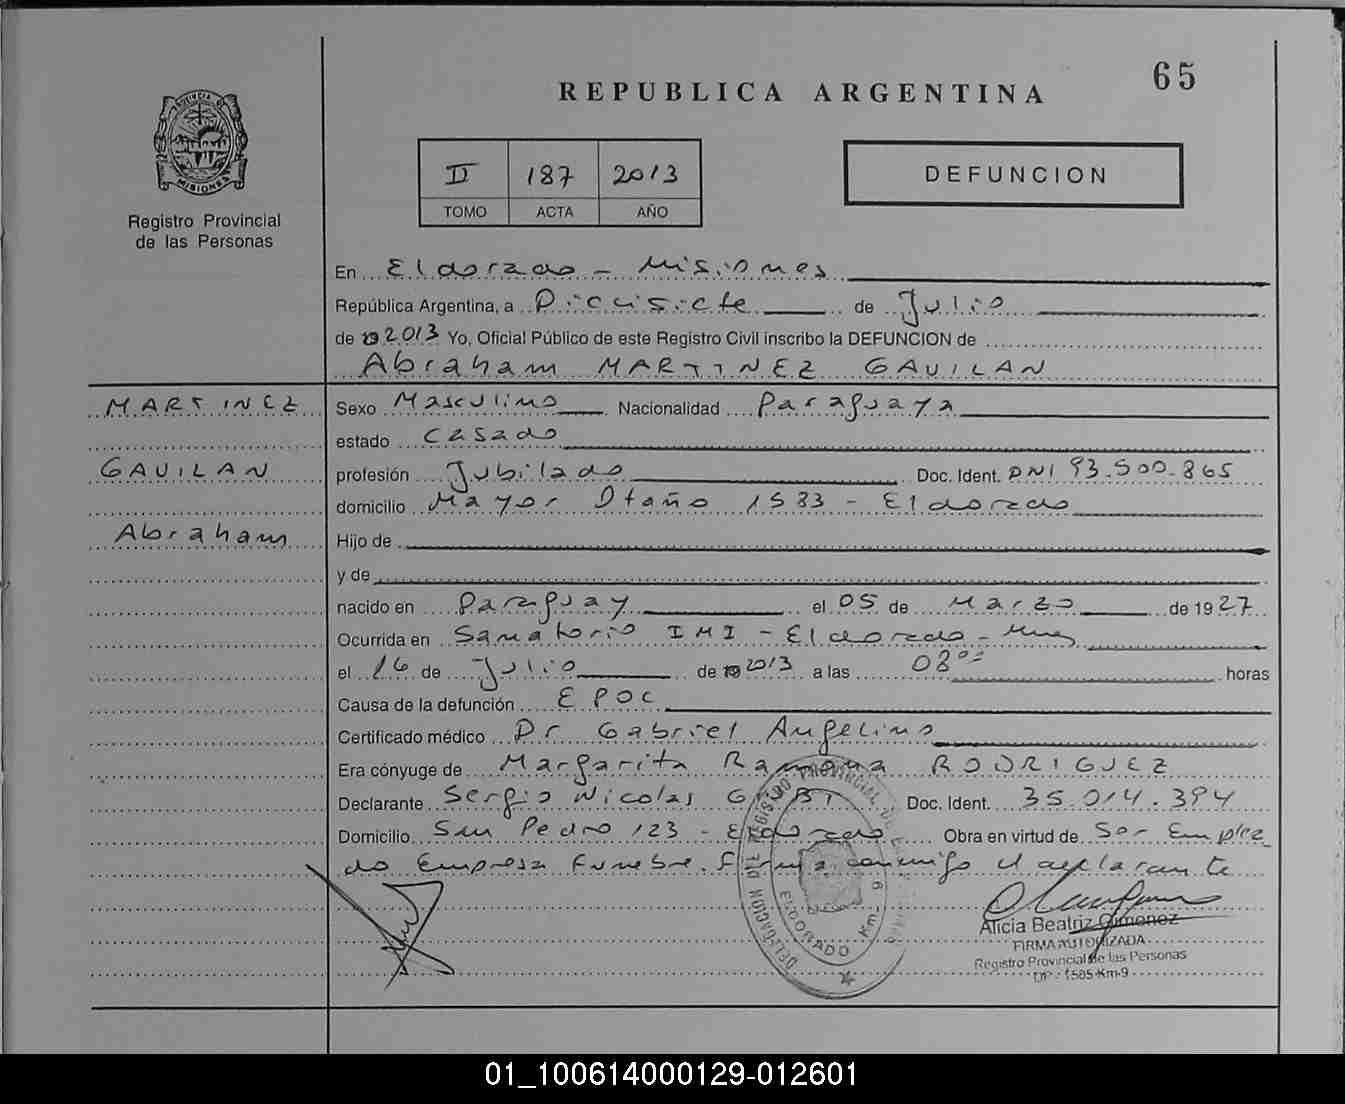 65
REPUBLICA ARGENTINA
PROVINCIA DE
MISIONES
Registro Provincial
de las Personas
II 187 2013
TOMO ACTA AÑO
DEFUNCION
En Eldorado - Misiones
República Argentina, a Diecisiete de Julio
de 2013 Yo, Oficial Público de este Registro Civil inscribo la DEFUNCION de
Abraham MARTINEZ GAVILAN
MARTINEZ
GAVILAN
Abraham
Sexo Masculino Nacionalidad Paraguaya
estado Casado
profesión Jubilado Doc. Ident. DNI 93.500.865
domicilio Mayor Otaño 1583 - Eldorado
Hijo de
y de
nacido en Paraguay el 05 de Marzo de 1927
Ocurrida en Sanatorio IMI - Eldorado - Mnes
el 16 de Julio de 2013 a las 08 00 horas
Causa de la defunción EPOC
Certificado médico Dr Gabriel Angelino
Era cónyuge de Margarita Ramona RODRIGUEZ
Declarante Sergio Nicolas Doc. Ident. 35.014.394
Domicilio San Pedro 123 - Eldorado Obra en virtud de Ser Emplea
do Empresa Funebre. Firma conmigo el declarante
DELEGACION DEL REGISTRO PROVINCIAL DE
ELDORADO Km-9
Alicia Beatriz Gimenez
FIRMA AUTORIZADA
Registro Provincial de las Personas
DP - 1585-Km-9
01_100614000129-012601